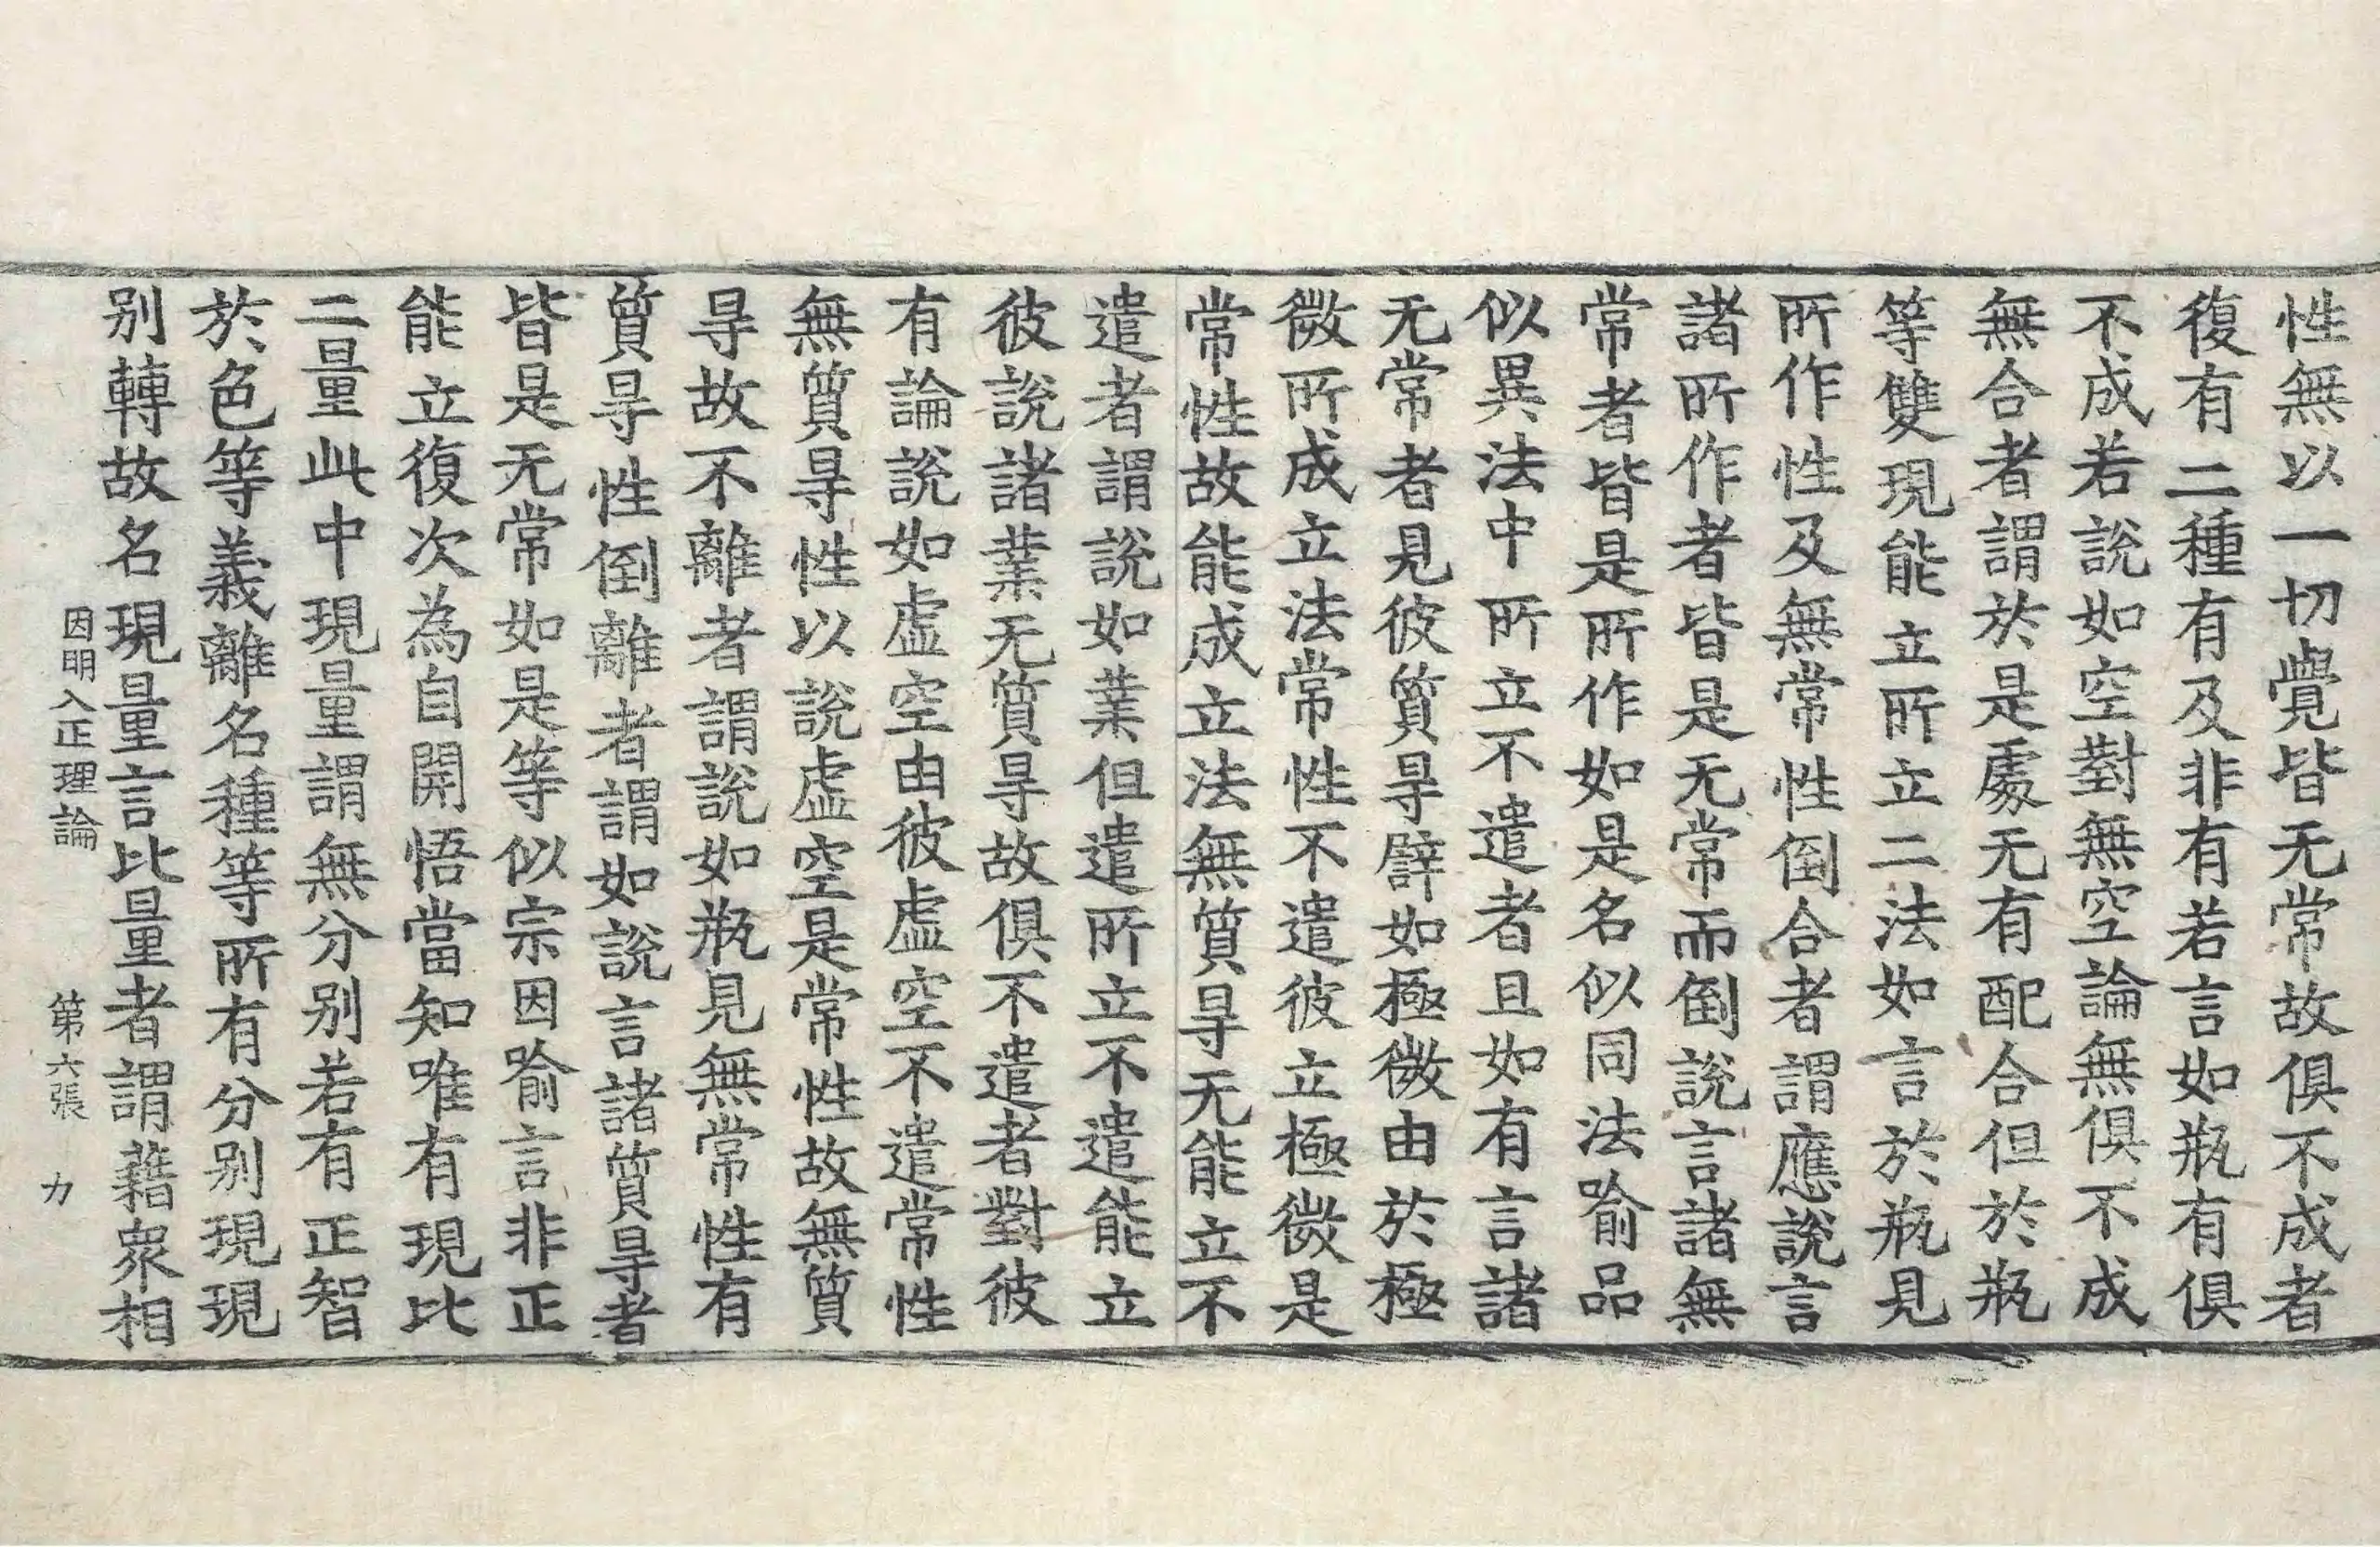 性無以一切覺皆无常故俱不成者
復有二種有及非有若言如瓶有俱
不成若說如空對無空論無俱不成
無合者謂於是處无有配合但於瓶
等雙現能立所立二法如言於瓶見
所作性及無常性倒合者謂應說言
諸所作者皆是无常而倒說言諸無
常者皆是所作如是名似同法喻品
似異法中所立不遣者且如有言諸
无常者見彼質㝵譬如極微由於極
微所成立法常性不遣彼立極微是
常性故能成立法無質㝵无能立不
遣者謂說如業但遣所立不遣能立
彼說諸業无質㝵故俱不遣者對彼
有論說如虛空由彼虛空不遣常性
無質㝵性以說虛空是常性故無質
㝵故不離者謂說如瓶見無常性有
質㝵性倒離者謂如說言諸質㝵者
皆是无常如是等似宗因喻言非正
能立復次為自開悟當知唯有現比
二量此中現量謂無分別若有正智
於色等義離名種等所有分別現現
別轉故名現量言比量者謂藉衆相
因明入正理論 第六張 力